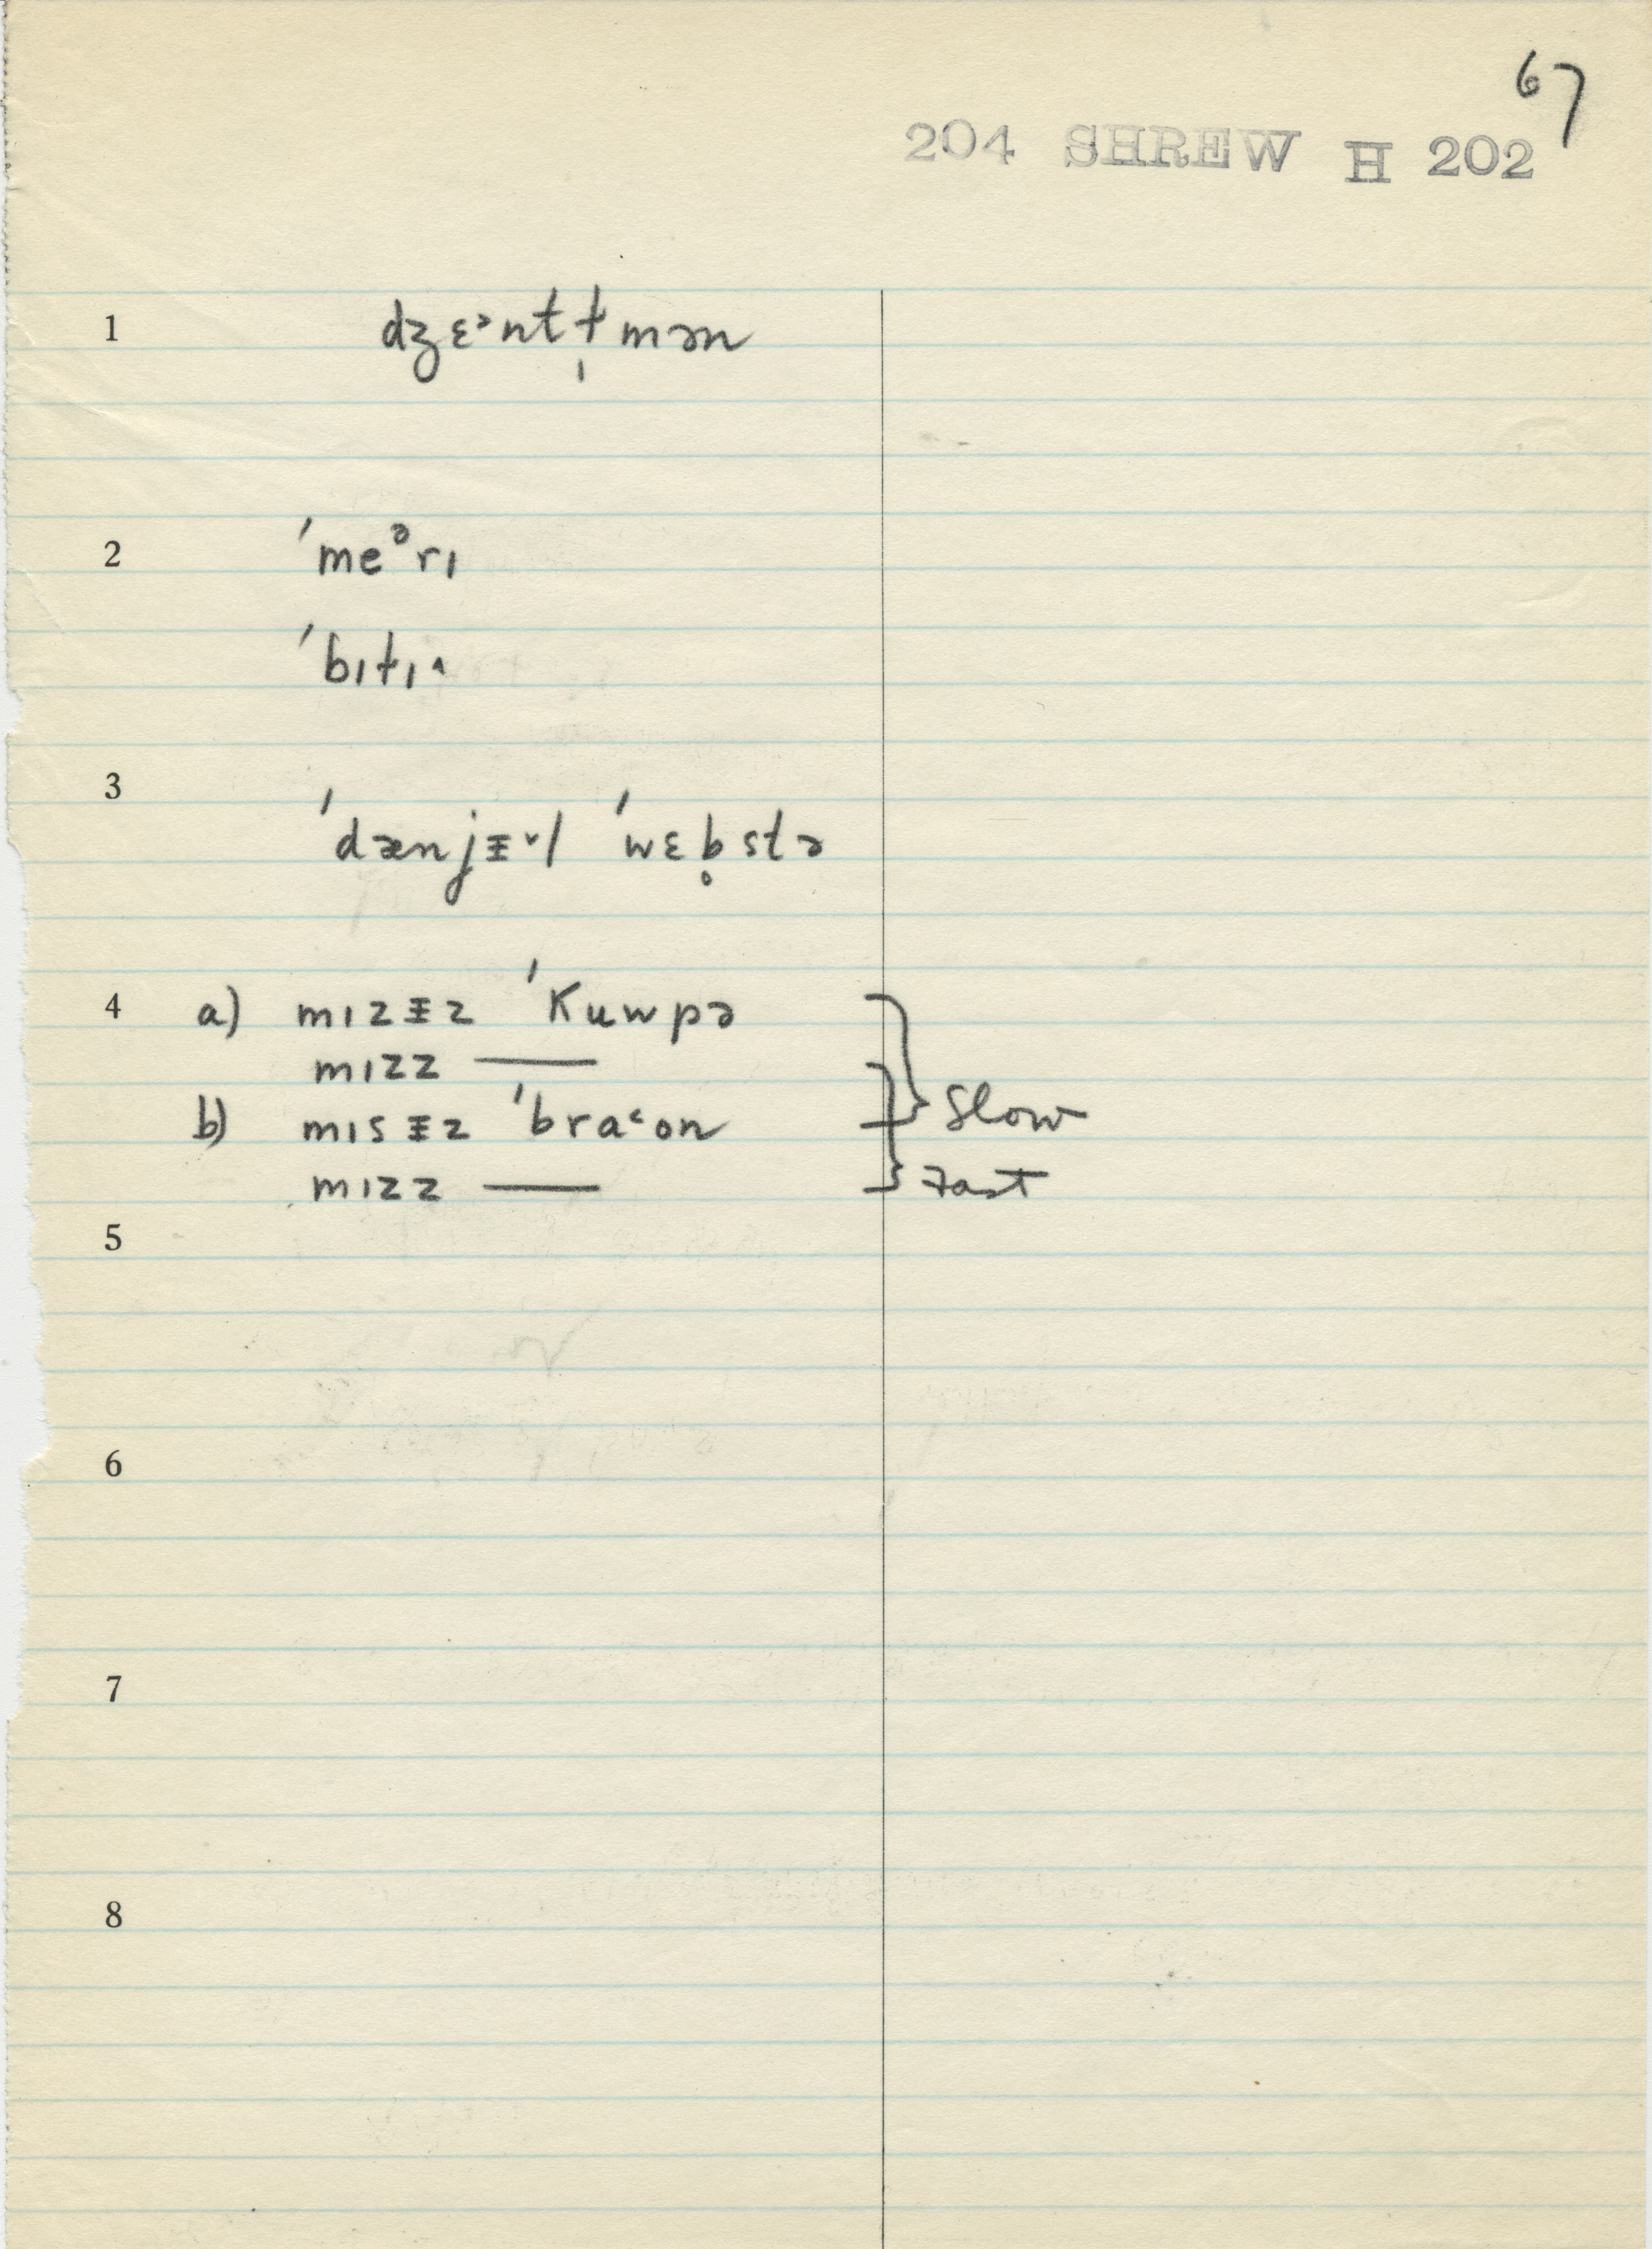 67
204 SHREW H 202
1 dʒɛ˃ntɫ̩mən
2 ˈmeᵊrɪ
ˈbɪɫɪ˄
3 ˈdænjᵻ˅l ˈwɛb̥stə
4 a) mɪzᵻz ˈkuwpə
mɪzz —
b) mɪsᵻz ˈbra˂on
mɪzz —
Slow
Fast
5
6
7
8